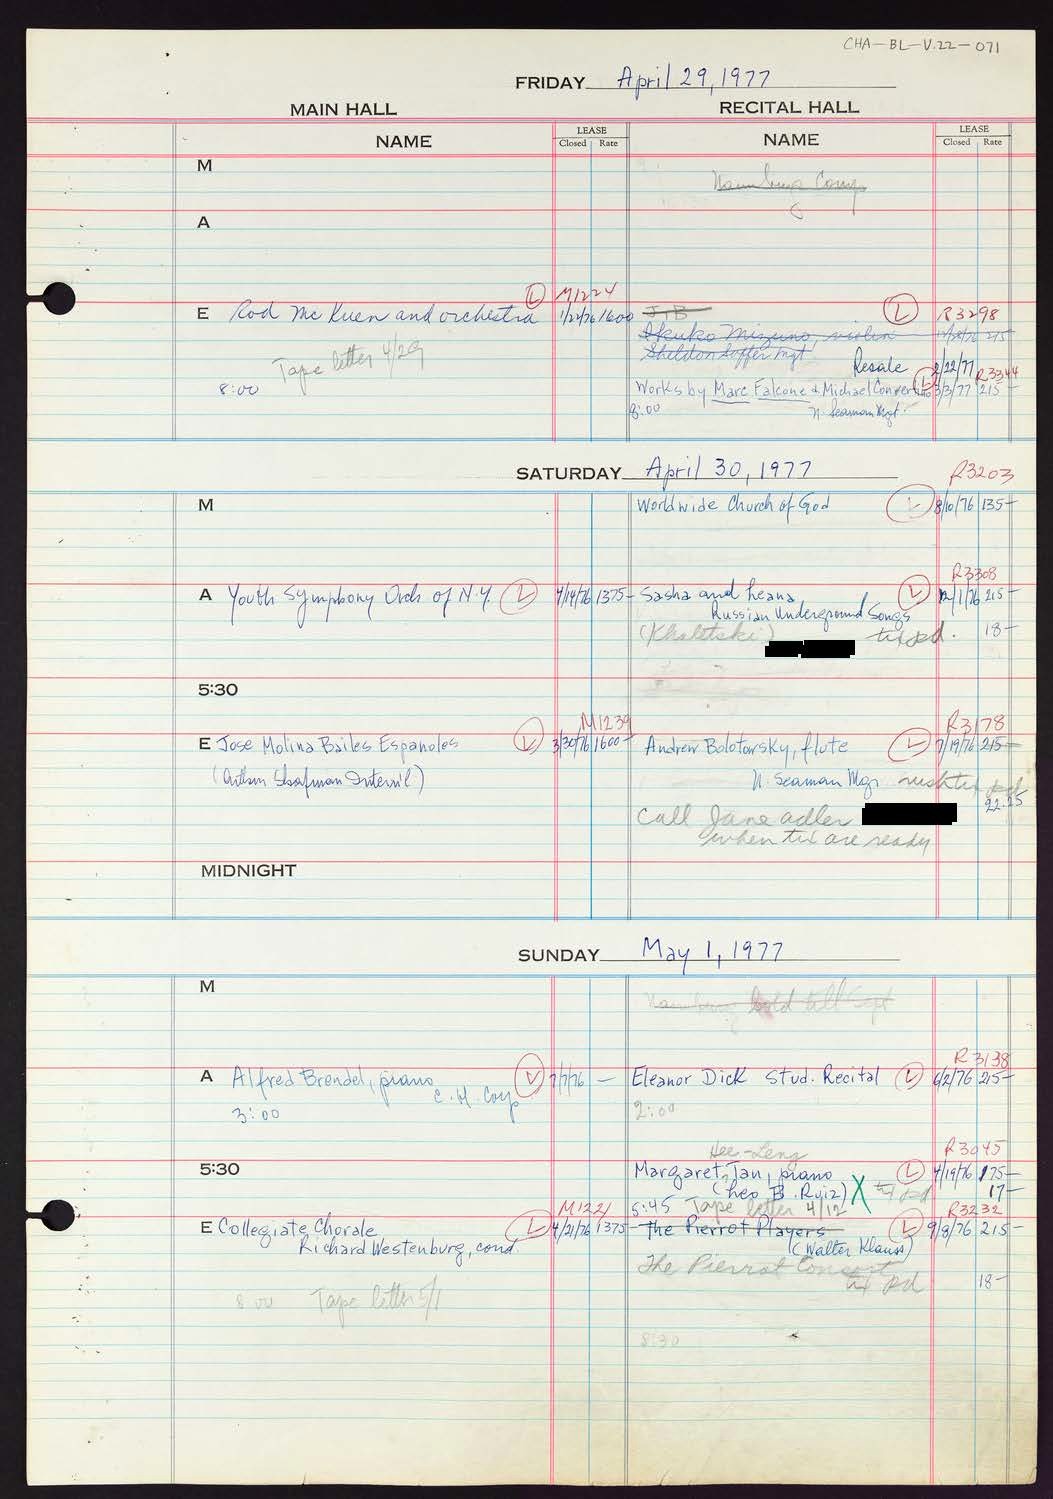 CHA-BL-V.22-071
FRIDAY April 29, 1977
MAIN HALL RECITAL HALL
NAME LEASE Closed Rate NAME LEASE Closed Rate
M
A
E Rod McKuen and orchestra L M1224 1/22/76 1600
Tape letter 4/29
8:00
JTB L R3298
Ikuko Mizuno, violin 215
Sheldon Soffer Mgt
Resale 2/22/77 R3344
Works by Marc Falcone & Michael Convertino L 3/3/77 215-
8:00 N. Seaman Mgt.
SATURDAY April 30, 1977
R3203
M Worldwide Church of God L 8/10/76 135-
R3308
A Youth Symphony Orch of N.Y. L 4/14/76 1375- Sasha and Leana L 12/1/76 215-
Russian Underground Songs
(Kholetski) tix pd. 18-
5:30
M1239 R3178
E Jose Molina Bailes Espanoles L 3/30/76 1600- Andrew Bolotowsky, flute L 7/19/76 215-
N. Seaman Mgr
22.25
Call Jane adler
when tix are ready
MIDNIGHT
SUNDAY May 1, 1977
M
R3138
A Alfred Brendel, piano L 7/7/76 - Eleanor Dick Stud. Recital L 6/2/76 215-
C.H. Corp
3:00 2:00
Hee-Leng R3045
5:30 Margaret Tan, piano L 4/19/76 175-
(Leo B. Ruiz) X tix pd 17-
5:45 Tape letter 4/12
M1221 R3232
E Collegiate Chorale L 4/21/76 1375- The Pierrot Players L 9/8/76 215-
Richard Westenburg, cond. (Walter Klauss)
The Pierrot Consort
tix pd 18-
8:00 Tape letter 5/1
8:30